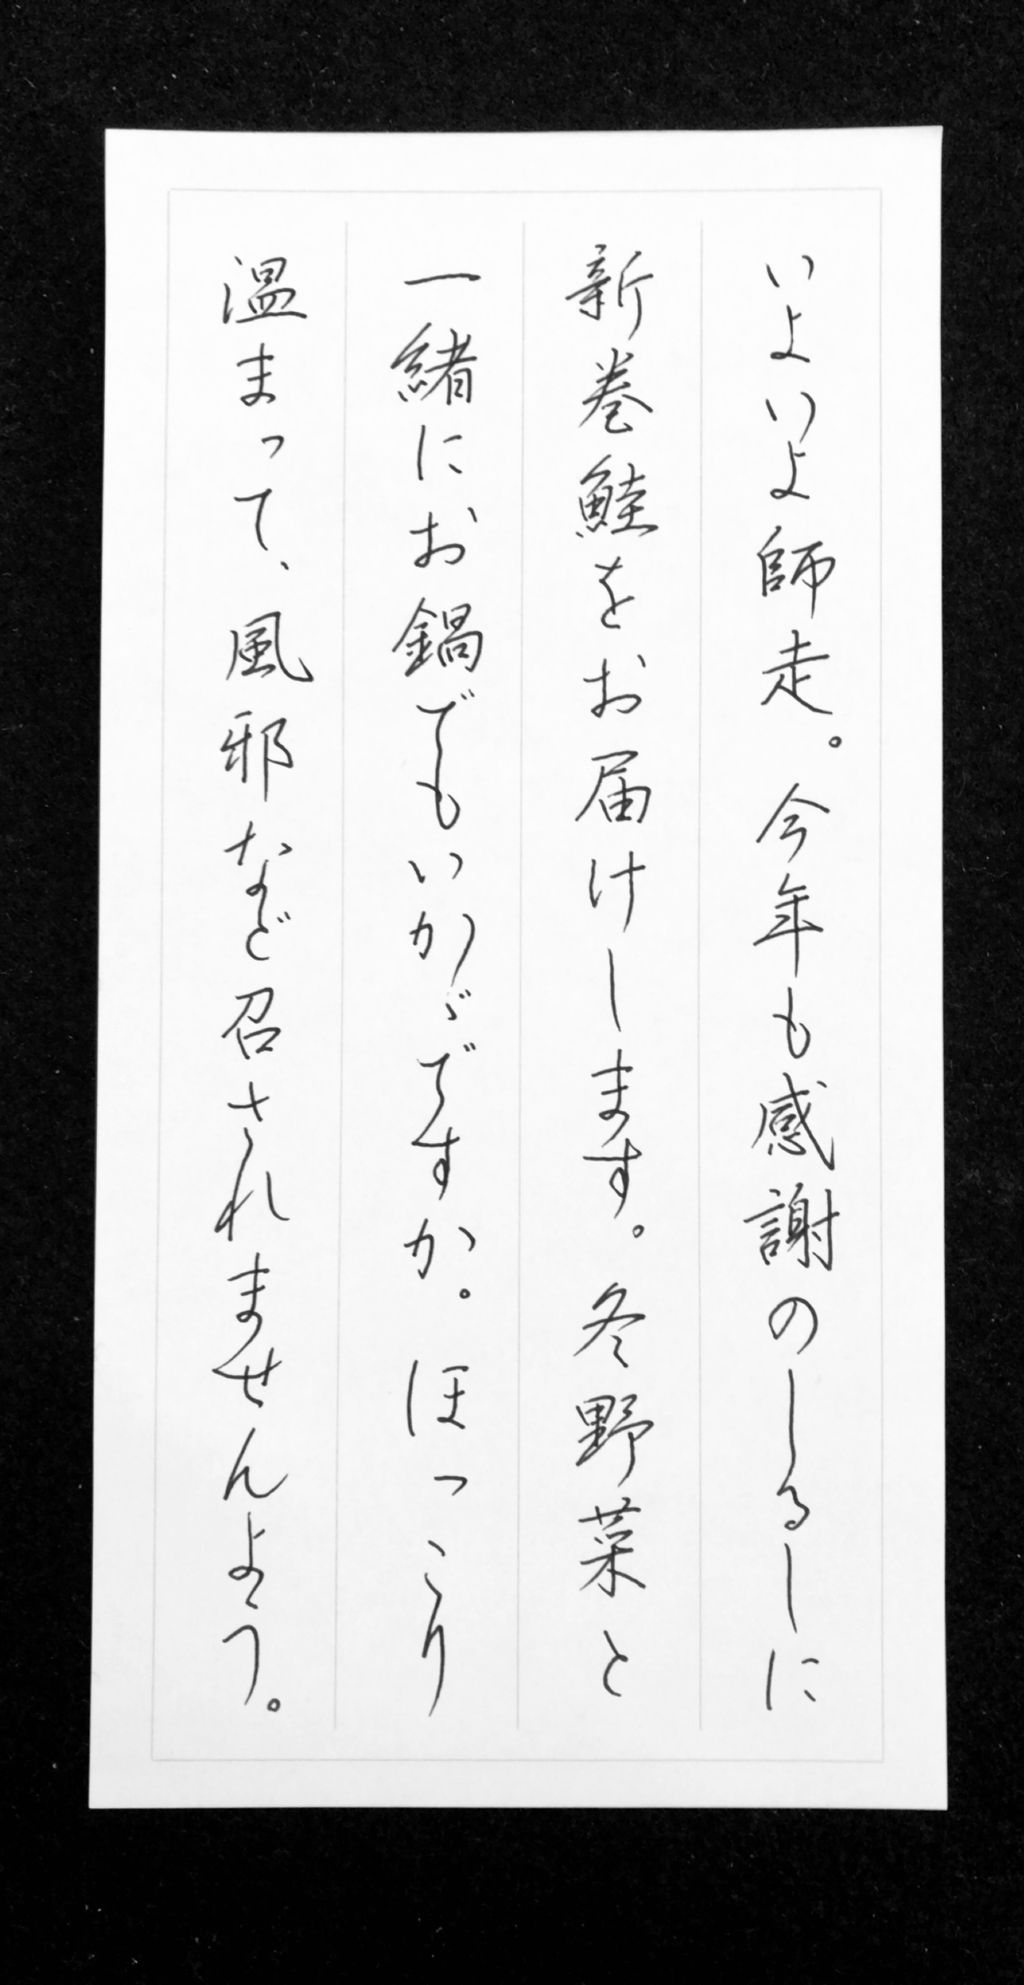 いよいよ師走。今年も感謝のしるしに
新巻鮭をお届けします。冬野菜と
一緒にお鍋でもいかゞですか。ほっこり
温まって、風邪など召されませんよう。